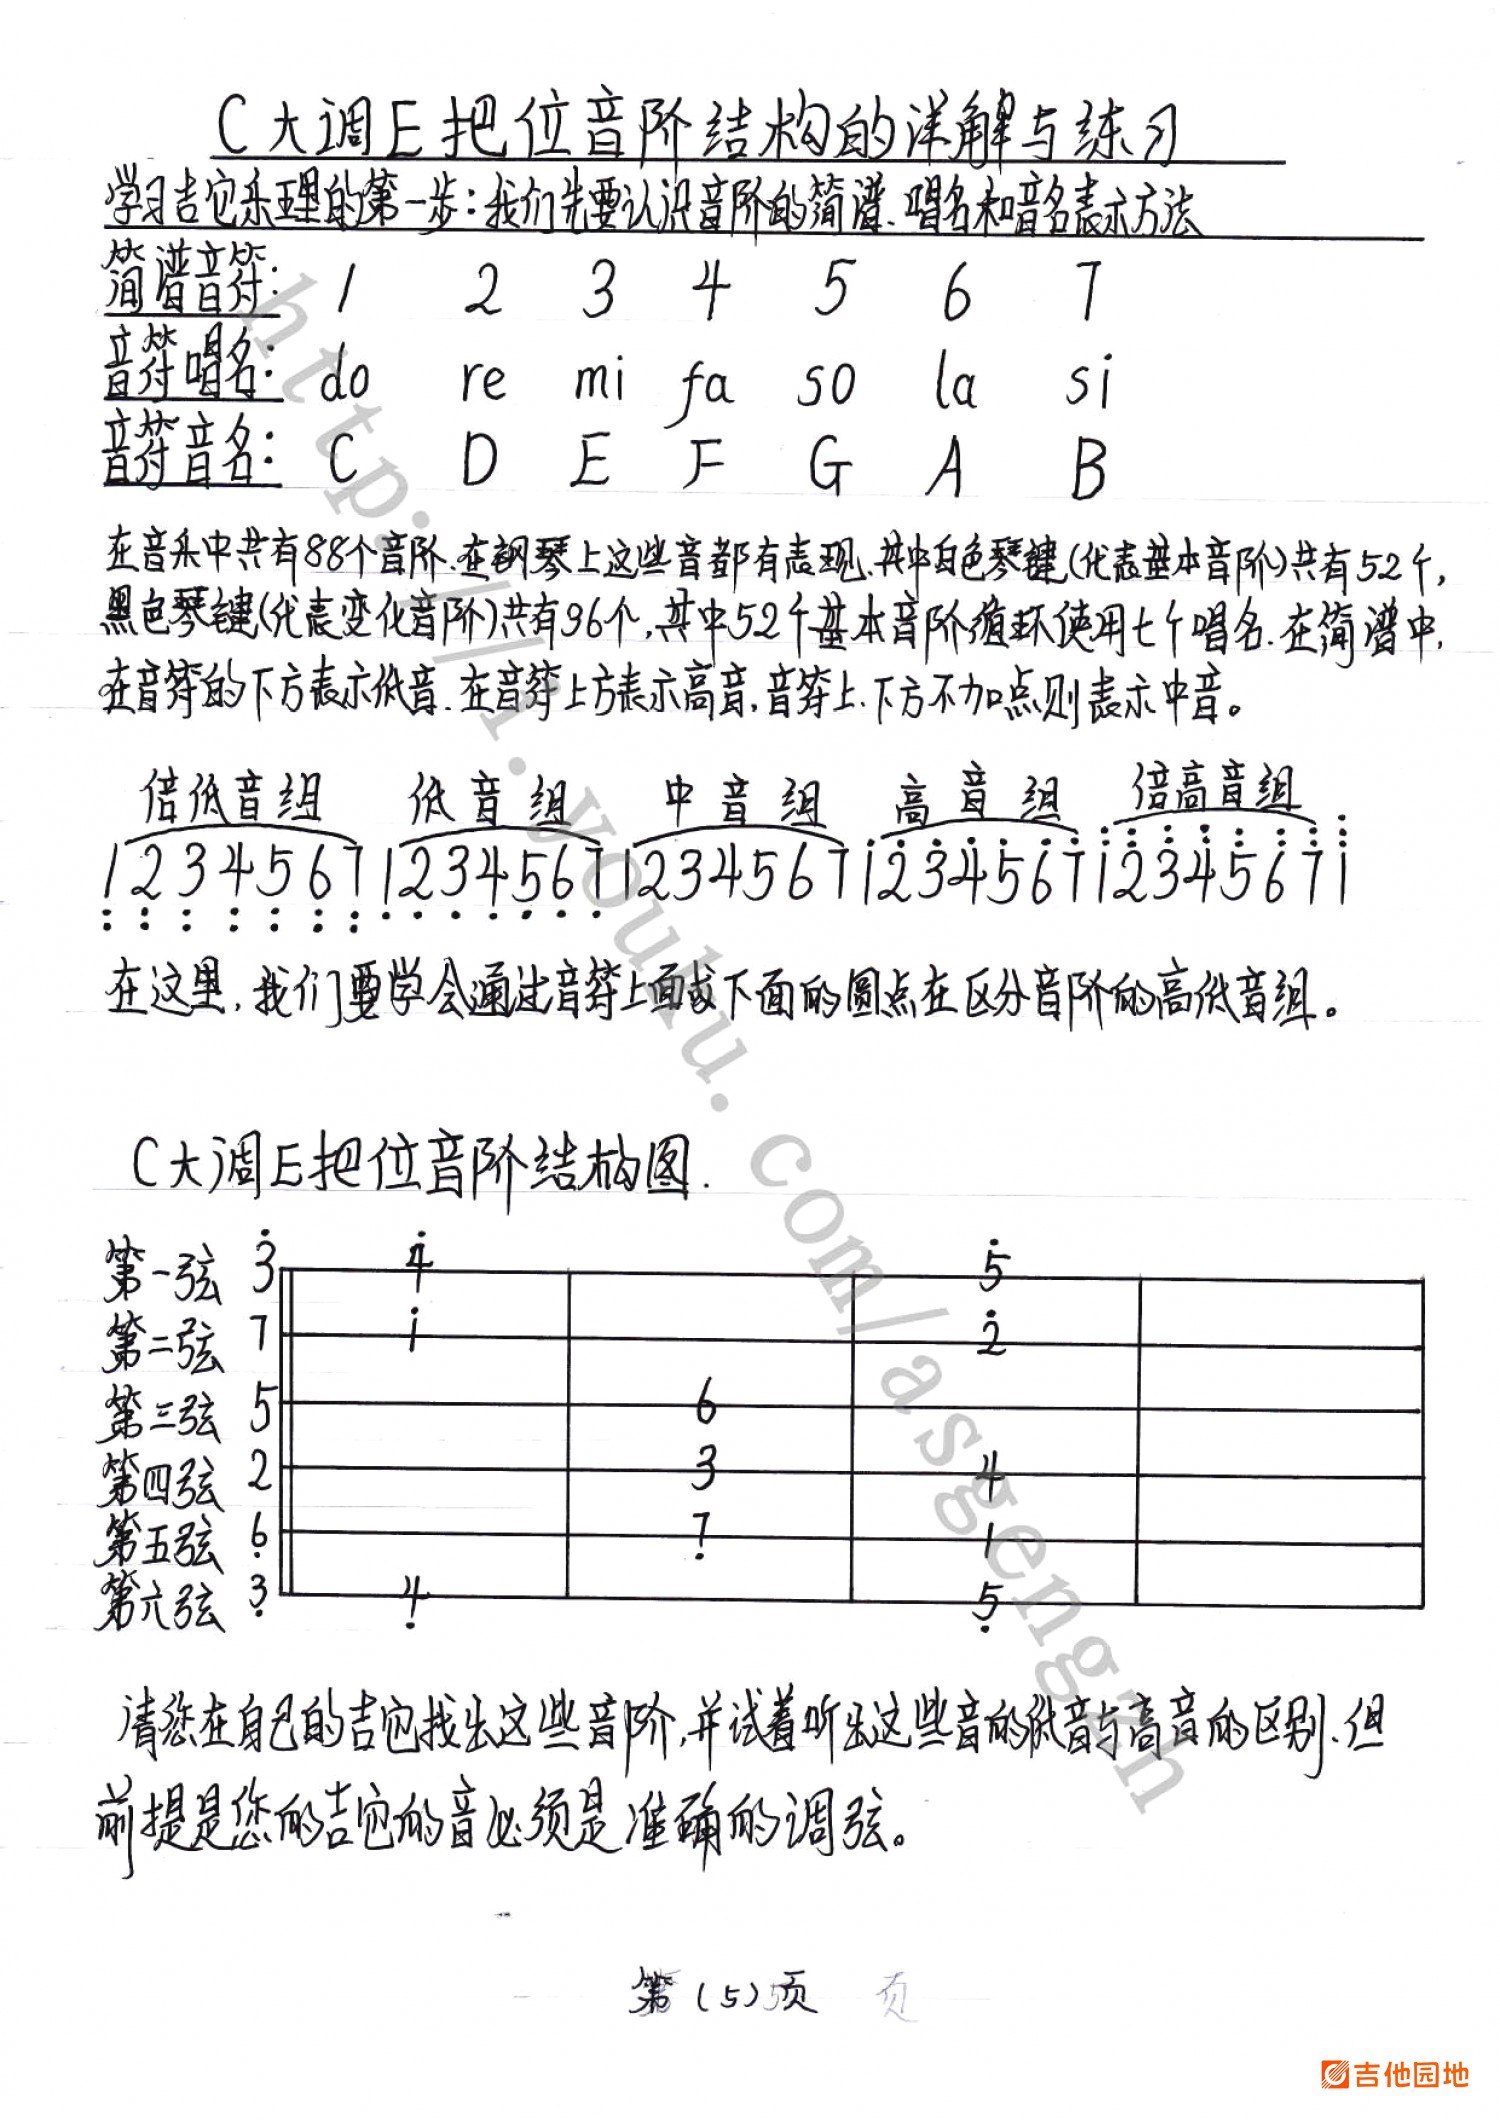 C大调E把位音阶结构的详解与练习
学习吉它乐理的第一步：我们先要认识音阶的简谱、唱名和音名表示方法
简谱音符: 1 2 3 4 5 6 7
音符唱名: do re mi fa so la si
音符音名: C D E F G A B
在音乐中共有88个音阶.在钢琴上这些音都有表现.其中白色琴键(代表基本音阶)共有52个,
黑色琴键(代表变化音阶)共有36个,其中52个基本音阶循环使用七个唱名.在简谱中,
在音符的下方表示低音.在音符上方表示高音,音符上.下方不加点则表示中音。
倍低音组 低音组 中音组 高音组 倍高音组
1̤ 2̤ 3̤ 4̤ 5̤ 6̤ 7̤ 1̣ 2̣ 3̣ 4̣ 5̣ 6̣ 7̣ 1 2 3 4 5 6 7 1̇ 2̇ 3̇ 4̇ 5̇ 6̇ 7̇ 1̈ 2̈ 3̈ 4̈ 5̈ 6̈ 7̈ 1⃛
在这里,我们要学会通过音符上面或下面的圆点在区分音阶的高低音组。
C大调E把位音阶结构图.
第一弦 3̇ 4̇ 5̇
第二弦 7 1̇ 2̇
第三弦 5 6
第四弦 2 3 4
第五弦 6̣ 7̣ 1
第六弦 3̣ 4̣ 5̣
请您在自己的吉它找出这些音阶,并试着听出这些音的低音与高音的区别.但
前提是您的吉它的音必须是准确的调弦。
第(5)页 页
http://i.youku.com/asgengzh
吉他园地